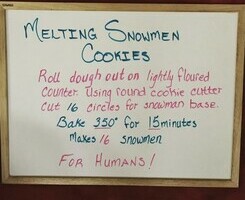 Melting Snowmen
Cookies
Roll dough out on lightly floured
counter. Using round cookie cutter
cut 16 circles for snowman base.
Bake 350° for 15 minutes
Makes 16 snowmen
For Humans!